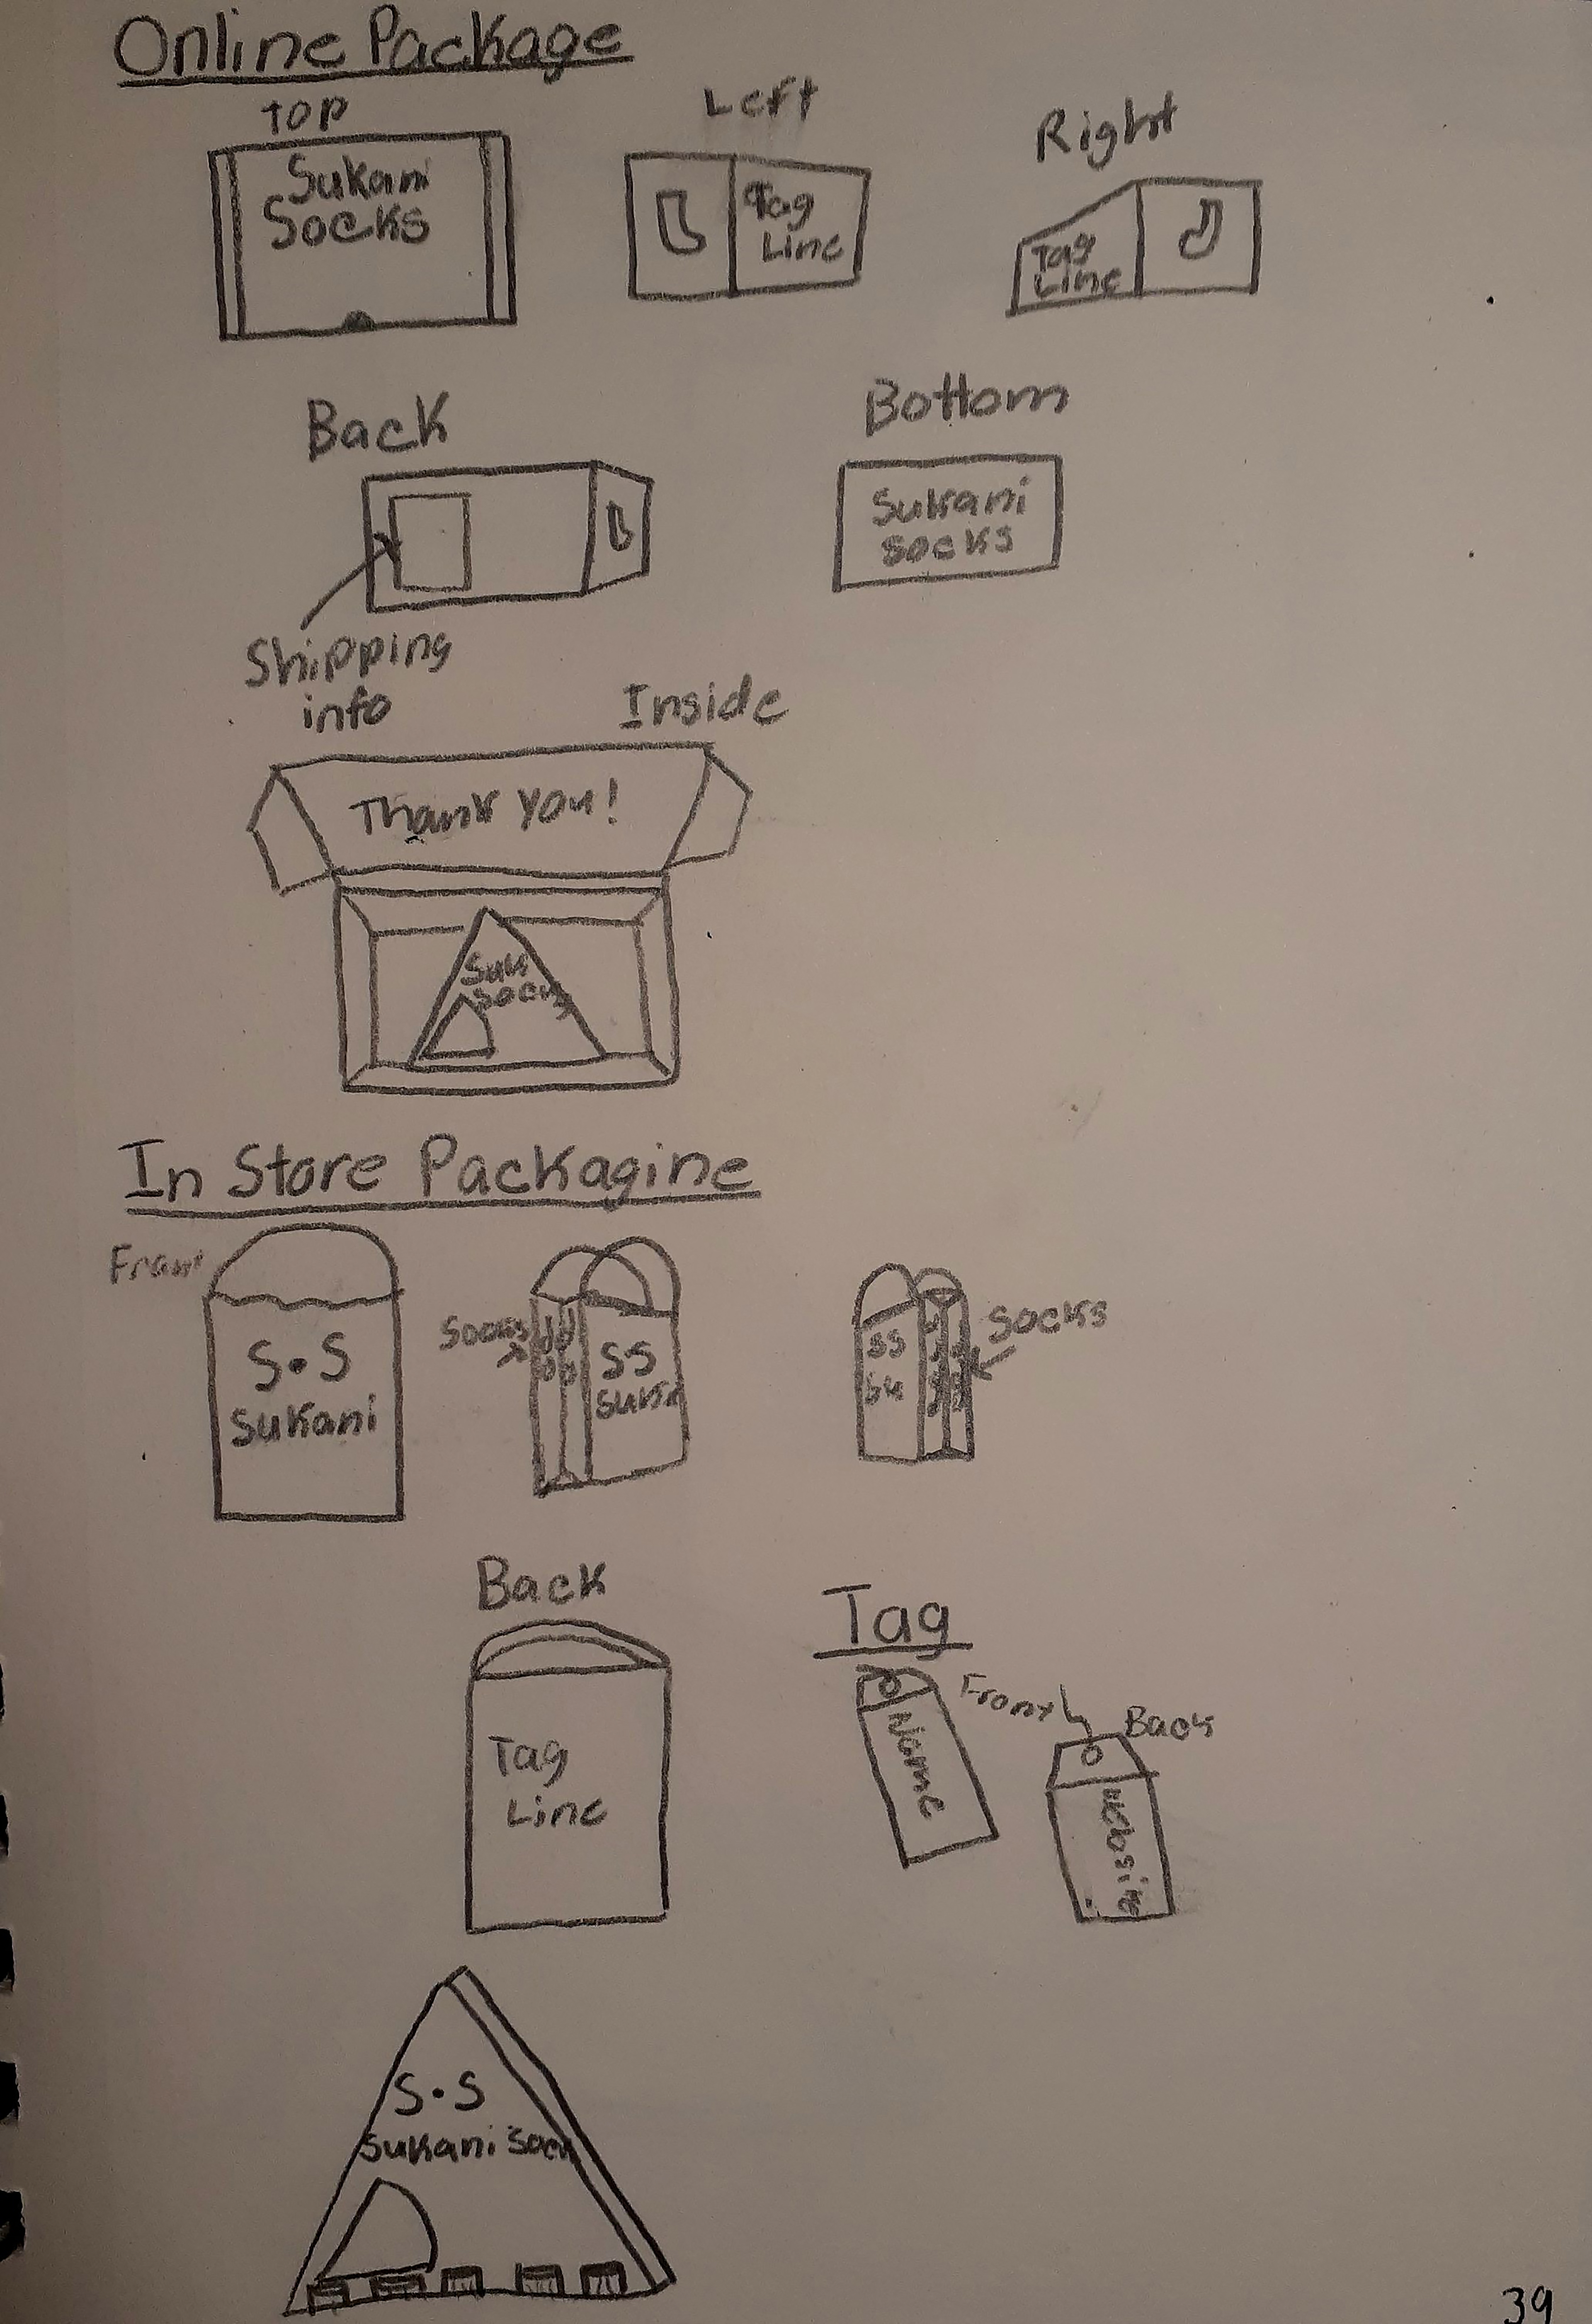 Online Package
Top
Left
Right
Sukani
Socks
Tag
Line
Tag
Line
Back
Bottom
Sukani
Socks
Shipping
info
Inside
Thank you!
Suk
Sock
In Store Packagine
Front
S•S
Sukani
Socks
SS
Suka
SS
Su
Socks
Back
Tag
Line
Tag
Front
Name
Back
Website
S•S
Sukani Soc
39